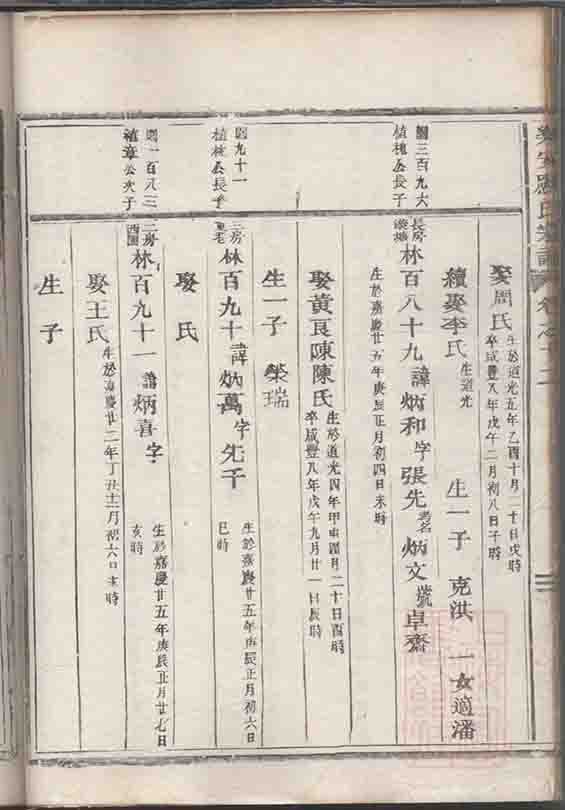 卷之十二
娶周氏
生於道光五年乙酉十月二十日戌時
卒咸豐八年戊午二月初八日子時
續娶李氏
生道光
生一子 克洪 一女適潘
三百九六
植槐公長子
長房
林百八十九諱炳和字張先
考名
炳文號卓齋
生於嘉慶廿五年庚辰正月初四日未時
娶黃良陳陳氏
生於道光四年甲申閏月二十日酉時
卒咸豐八年戊午九月廿一日辰時
生一子 榮瑞
九十一
植 公長子
三房
林百九十諱炳萬字先千
生於嘉慶廿五年庚辰正月初六日
巳時
娶 氏
一百八三
植章公次子
二房
西園
林百九十一諱炳喜字
生於嘉慶廿五年庚辰正月廿七日
亥時
娶王氏
生於嘉慶廿二年丁丑十二月初六日未時
生子